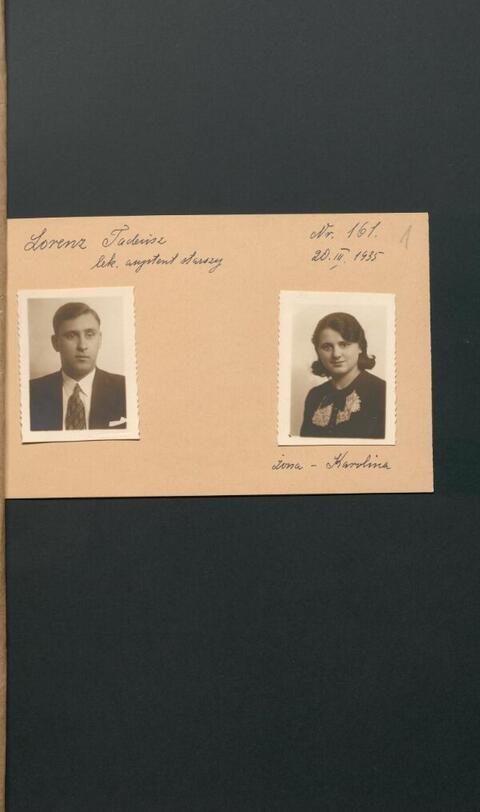 Lorenz Tadeusz
lek. asystent starszy
Nr. 161.
20. III. 1935
1
żona - Karolina